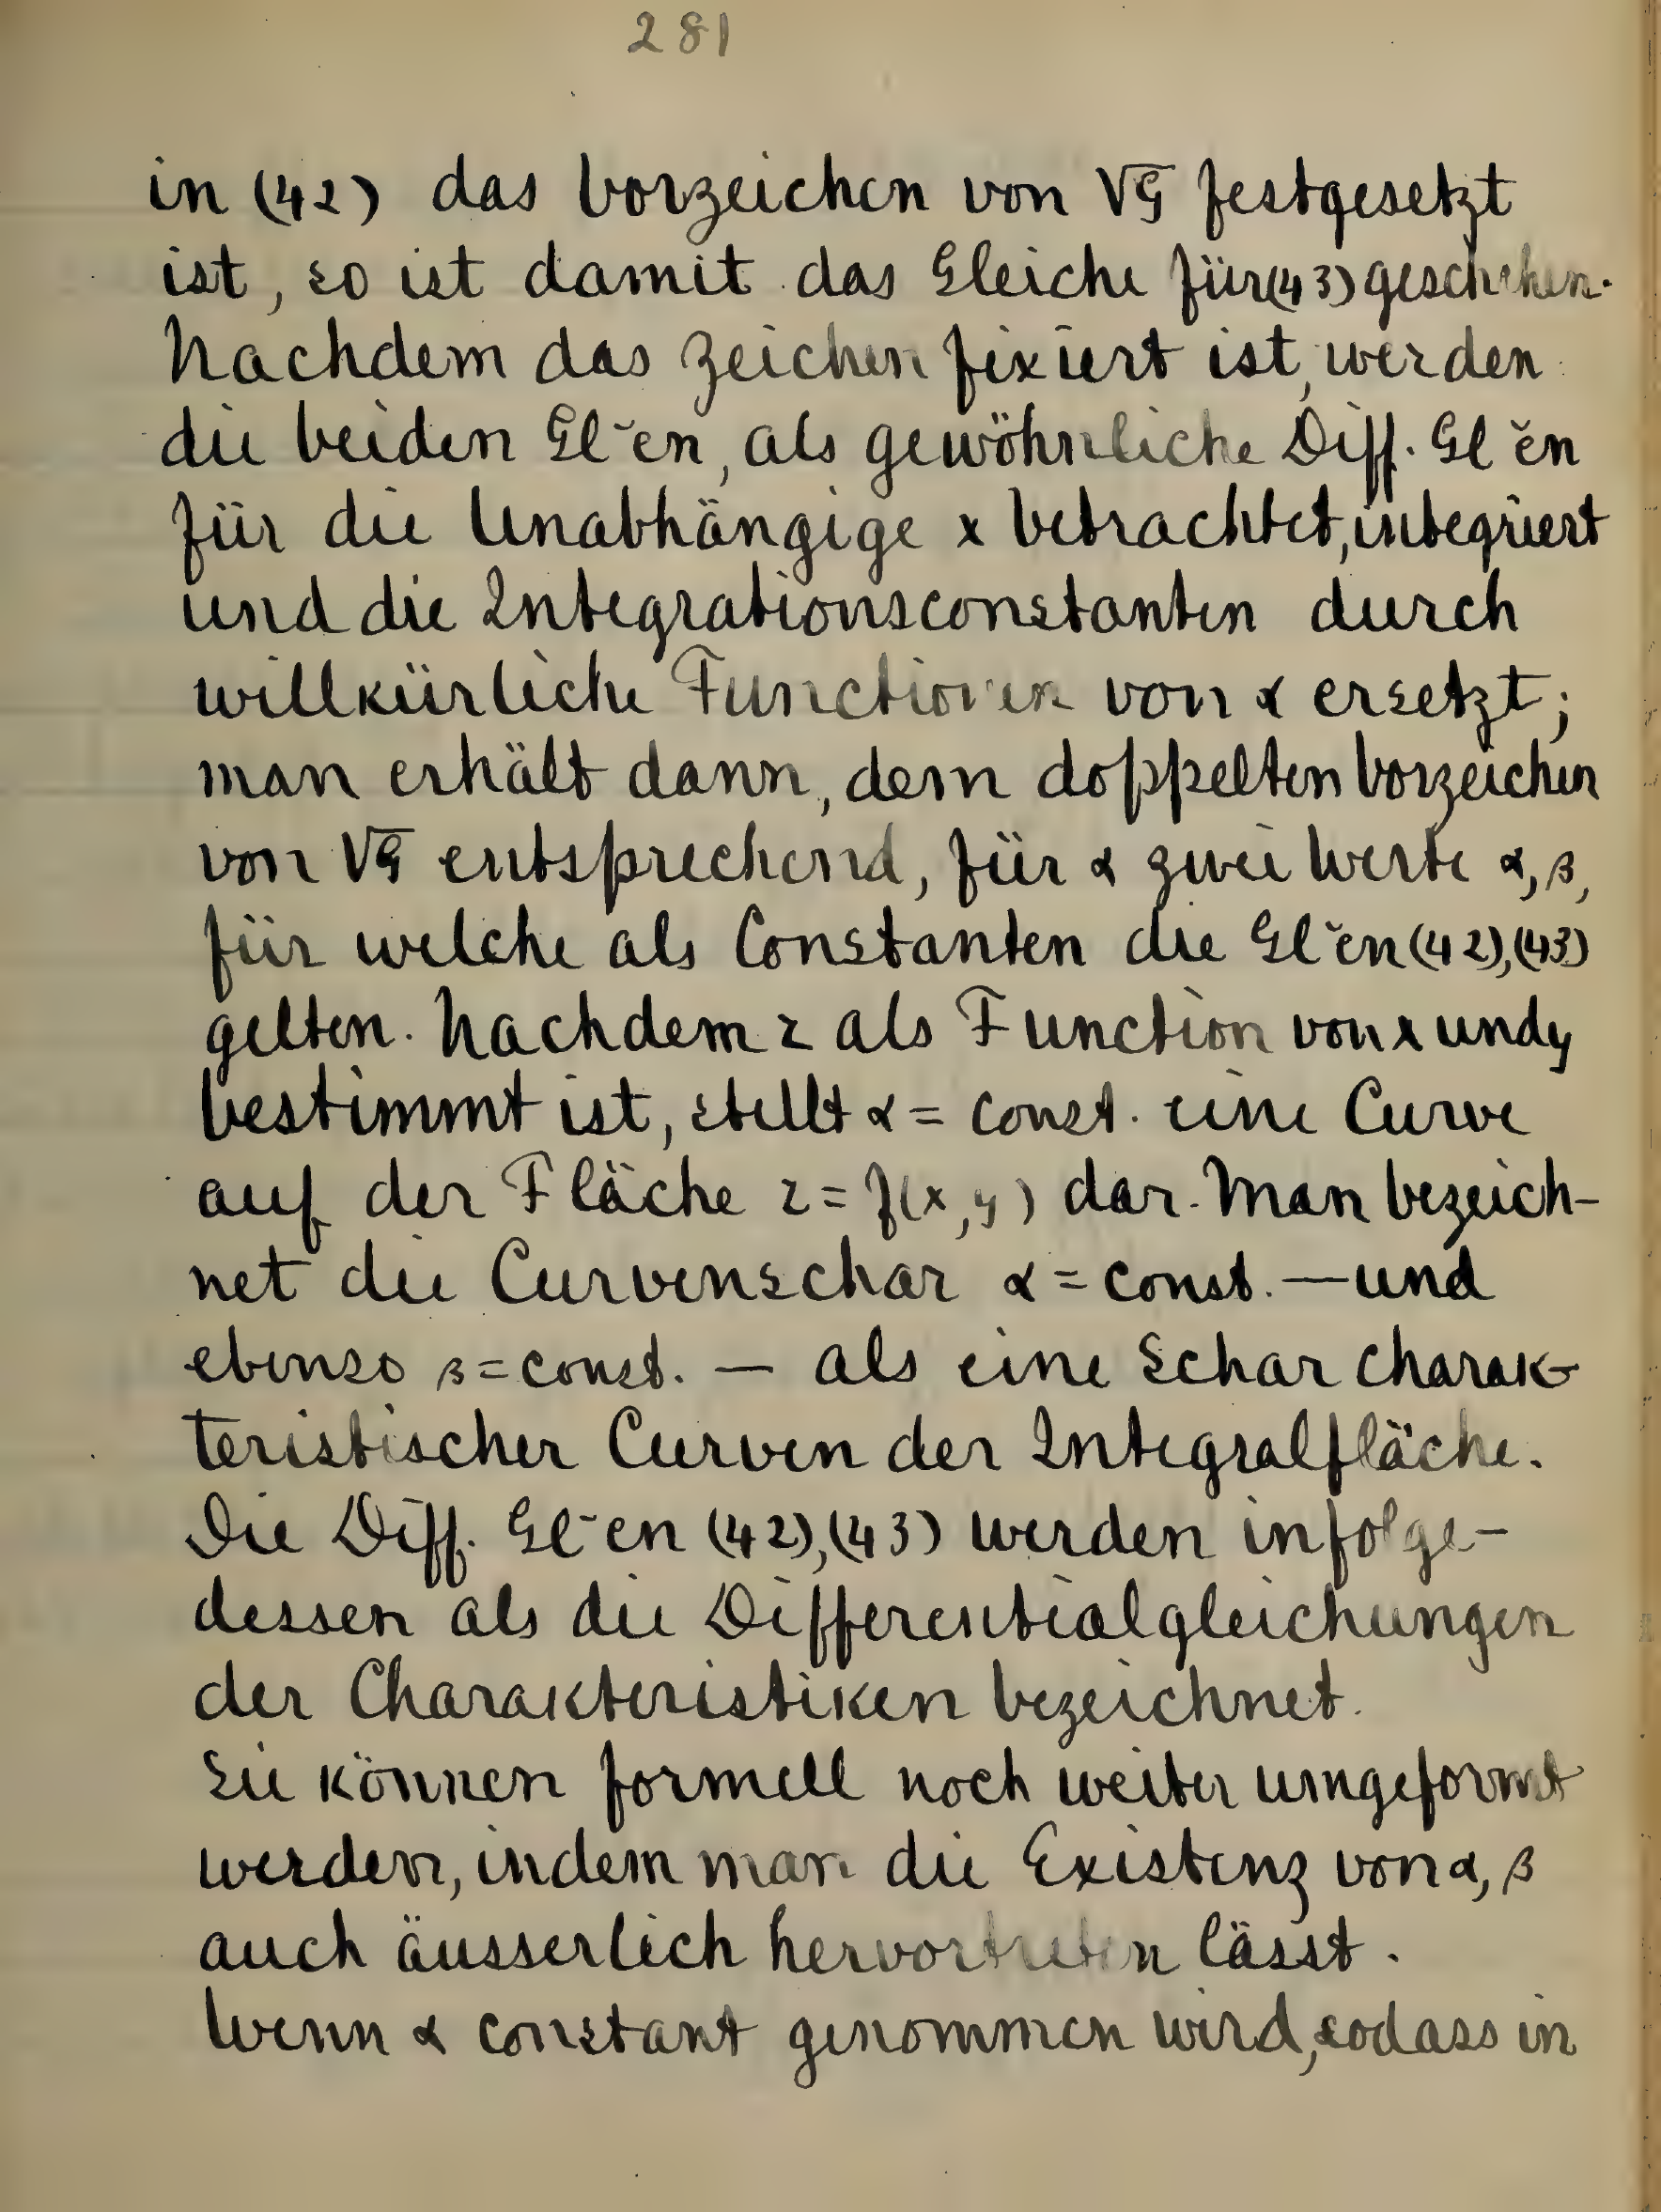 281
in (42) das Vorzeichen von √G festgesetzt
ist, so ist damit das Gleiche für (43) geschehen.
Nachdem das Zeichen fixiert ist, werden
die beiden Gl̆en, als gewöhnliche Diff. Gl̆en
für die Unabhängige x betrachtet, integriert
und die Integrationsconstanten durch
willkürliche Functionen von α ersetzt;
man erhält dann, dem doppelten Vorzeichen
von √G entsprechend, für α zwei Werte α, β,
für welche als Constanten die Gl̆en (42), (43)
gelten. Nachdem z als Function von x und y
bestimmt ist, stellt α = const. eine Curve
auf der Fläche z = f(x, y) dar. Man bezeich-
net die Curvenschar α = const. — und
ebenso β = const. — als eine Schar charak-
teristischer Curven der Integralfläche.
Die Diff. Gl̆en (42), (43) werden infolge-
dessen als die Differentialgleichungen
der Charakteristiken bezeichnet.
Sie können formell noch weiter umgeformt
werden, indem man die Existenz von α, β
auch äusserlich hervortreten lässt.
Wenn α constant genommen wird, sodass in